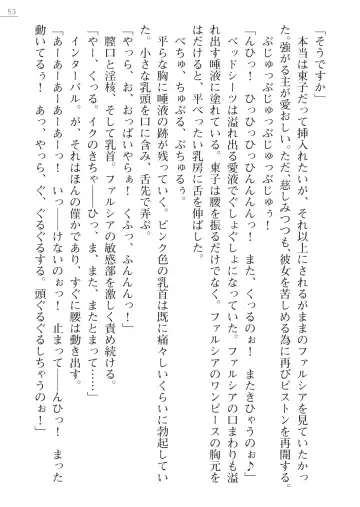 53
「そうですか」
　本当は東子だって挿入れたいが、それ以上にされるがままのファルシアを見ていたかっ
た。強がる主が愛おしい。ただ、慈しみつつも、彼女を苦しめる為に再びピストンを再開する。
　ぷじゅっぷじゅっぷじゅっぷじゅぅ！
「んひっ！　ひっひっひっひんんんんっ！　また、くっるのぉ！　またきひゃうのぉ♪」
　ベッドシーツは溢れ出る愛液でぐしょぐしょになっていて、ファルシアの口まわりも溢
れ出す唾液に塗れている。東子は腰を振るだけでなく、ファルシアのワンピースの胸元を
はだけると、平べったい乳房に舌を伸ばした。
　べちゅ、ちゅぷる、ぷちゅるぅ。
　平らな胸に唾液の跡が残っていく。ピンク色の乳首は既に痛々しいくらいに勃起してい
た。小さな乳頭を口に含み、舌先で弄ぶ。
「やっら、お、おっぱいやらぁ！　くふっ、ふんんんっ！」
　膣口と淫核、そして乳首。ファルシアの敏感部を激しく責め続ける。
「やー、くっる。イクのきちゃ――ひっ、ま、また、またとまって――……」
　インターバル。が、それはほんの僅かであり、すぐに腰は動き出す。
「あーあーあーあーあーっ！　いっ――けないのぉっ！　止まって――んひっ！　まった
動いてるぅ！　あっ、やっら、ぐ、ぐるぐるする。頭ぐるぐるしちゃうのぉ！」